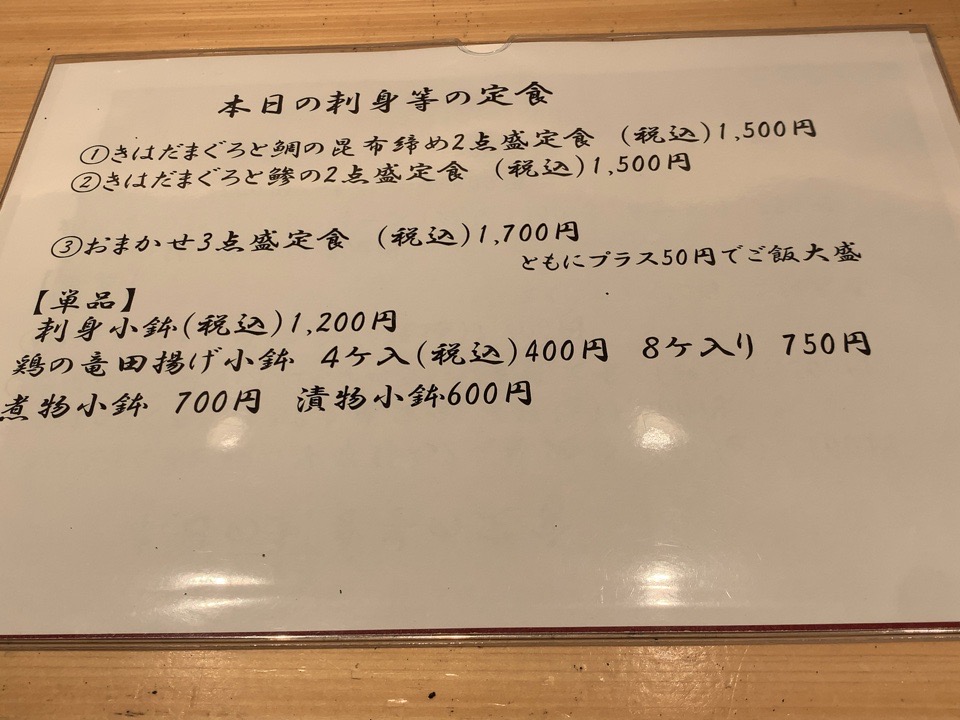 本日の刺身等の定食
①きはだまぐろと鯛の昆布締め2点盛定食 (税込)1,500円
②きはだまぐろと鯵の2点盛定食 (税込)1,500円
③おまかせ3点盛定食 (税込)1,700円
ともにプラス50円でご飯大盛
【単品】
刺身小鉢(税込)1,200円
鶏の竜田揚げ小鉢 4ケ入(税込)400円 8ケ入り 750円
煮物小鉢 700円 漬物小鉢600円